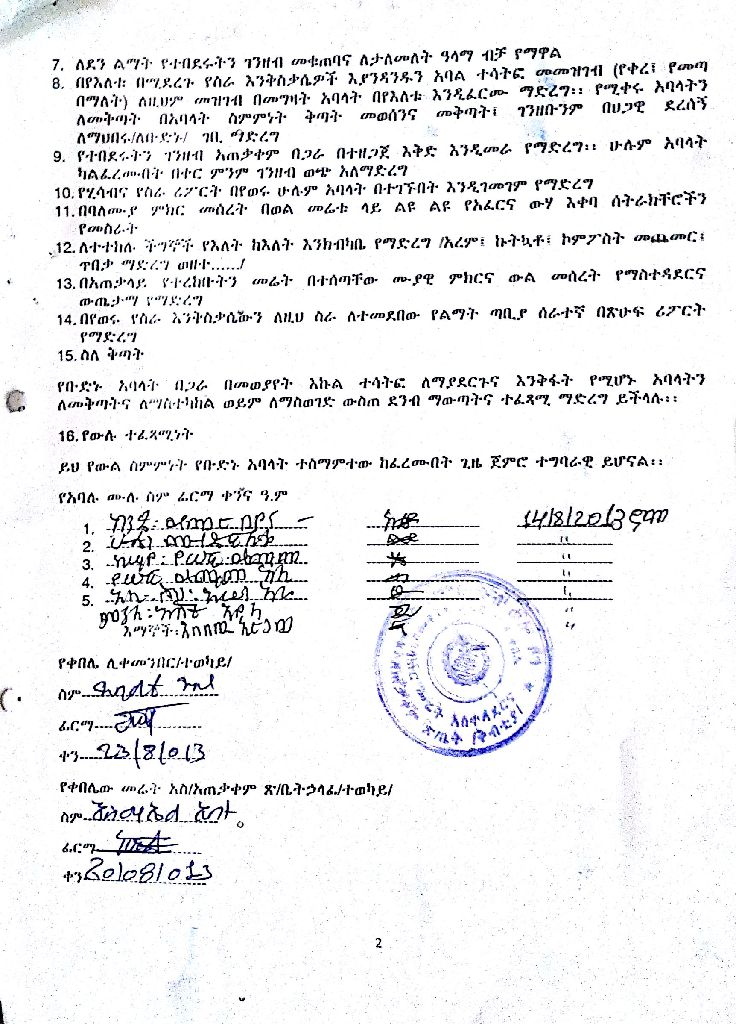 7. ለደን ልማት የተበደሩትን ገንዘብ መቁጠባና ለታለመለት ዓላማ ብቻ የማዋል
8. በየእለቱ በሚደረጉ የስራ እንቅስቃሴዎች እያንዳንዱን አባል ተሳትፎ መመዝገብ (የቀረ፤ የመጣ
በማለት) ለዚህም መዝገብ በመግዛት አባላት በየእለቱ እንዲፈርሙ ማድረግ፡፡ የሚቀሩ አባላትን
ለመቅጣት በአባላት ስምምነት ቅጣት መወሰንና መቅጣት፤ ገንዘቡንም በህጋዊ ደረሰኝ
ለማህበሩ/ለቡድኑ/ ገቢ ማድረግ
9. የተበደሩትን ገንዘብ አጠቃቀም በጋራ በተዘጋጀ እቅድ እንዲመራ የማድረግ፡፡ ሁሉም አባላት
ካልፈረሙበት በቀር ምንም ገንዘብ ወጭ አለማድረግ
10. የሂሳብና የስራ ሪፖርት በየወሩ ሁሉም አባላት በተገኙበት እንዲገመገም የማድረግ
11. በባለሙያ ምክር መሰረት በወል መሬቱ ላይ ልዩ ልዩ የአፈርና ውሃ እቀባ ስትራክቸሮችን
የመስራት
12. ለተተከሉ ችግኞች የእለት ከእለት እንክብካቤ የማድረግ /አረም፤ ኩትኳቶ፤ ኮምፖስት መጨመር፤
ጥበቃ ማድረግ ወዘተ....../
13. በአጠቃላይ የተረከቡትን መሬት በተሰጣቸው ሙያዊ ምክርና ውል መሰረት የማስተዳደርና
ውጤታማ የማድረግ
14. በየወሩ የስራ እንቅስቃሴውን ለዚህ ስራ ለተመደበው የልማት ጣቢያ ሰራተኛ በጽሁፍ ሪፖርት
የማድረግ
15. ስለ ቅጣት
የቡድኑ አባላት በጋራ በመወያየት እኩል ተሳትፎ ለማያደርጉና እንቅፋት የሚሆኑ አባላትን
ለመቅጣትና ለማስተካከል ወይም ለማስወገድ ውስጠ ደንብ ማውጣትና ተፈጻሚ ማድረግ ይችላሉ፡፡
16. የውሉ ተፈጻሚነት
ይህ የውል ስምምነት የቡድኑ አባላት ተስማምተው ከፈረሙበት ጊዜ ጀምሮ ተግባራዊ ይሆናል፡፡
የአባሉ ሙሉ ስም ፊርማ ቀንና ዓ.ም
1. 14/8/2013
2. "
3. "
4. "
5. "
"
"
የቀበሌ ሊቀመንበር/ተወካይ/
ስም
ፊርማ
ቀን 23/8/013
የቀበሌው መሬት አስ/አጠቃቀም ጽ/ቤት ኃላፊ/ተወካይ/
ስም
ፊርማ
ቀን 20/08/013
2